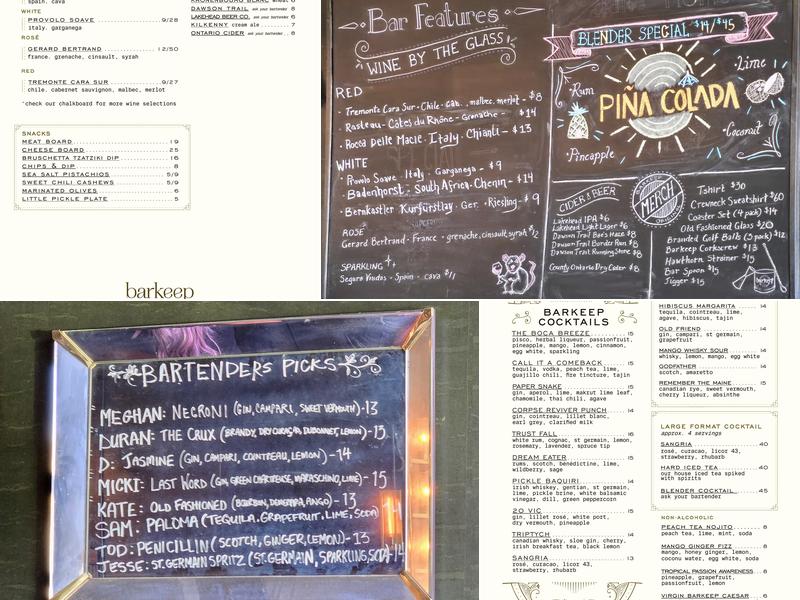 spain. cava
WHITE
PROVOLO SOAVE 9/28
italy. garganega
ROSÉ
GERARD BERTRAND 12/50
france. grenache, cinsault, syrah
RED
TREMONTE CARA SUR 9/27
chile. cabernet sauvignon, malbec, merlot
*check our chalkboard for more wine selections
KRONENBOURG BLANC wheat 8
DAWSON TRAIL ask your bartender 8
LAKEHEAD BEER CO. ask your bartender 6
KILKENNY cream ale 7
ONTARIO CIDER ask your bartender 8
SNACKS
MEAT BOARD 19
CHEESE BOARD 25
BRUSCHETTA TZATZIKI DIP 16
CHIPS & DIP 8
SEA SALT PISTACHIOS 5/9
SWEET CHILI CASHEWS 5/9
MARINATED OLIVES 6
LITTLE PICKLE PLATE 5
barkeep
Bar Features
WINE BY THE GLASS
RED
- Tremonte Cara Sur - Chile - Cab., malbec, merlot - $8
- Rasteau - Côtes du Rhône - Grenache - $14
- Rocca Delle Macie - Italy - Chianti - $13
WHITE
- Provolo Soave - Italy - Garganega - $9
- Badenhorst - South Africa - Chenin - $14
- Bernkastler Kurfürstlay - Ger. - Riesling - $9
ROSÉ
Gerard Bertrand - France - grenache, cinsault, syrah $12
SPARKLING
Segura Viudas - Spain - cava $11
BLENDER SPECIAL $14/$45
Rum
Lime
PIÑA COLADA
Pineapple
Coconut
CIDER & BEER
Lakehead IPA $6
Lakehead Light Lager $6
Dawson Trail Bae's Haze $8
Dawson Trail Border Run $8
Dawson Trail Running Stone $8
County Ontario Dry Cider $8
BARKEEP
MERCH
Tshirt $30
Crewneck Sweatshirt $60
Coaster Set (4 pack) $14
Old Fashioned Glass $20
Branded Golf Balls (3 pack) $12
Barkeep Corkscrew $13
Hawthorn Strainer $15
Bar Spoon $15
Jigger $15
BARTENDERS PICKS
MEGHAN: NEGRONI (GIN, CAMPARI, SWEET VERMOUTH) - 13
DURAN: THE CRUX (BRANDY, DRY CURAÇAO, DUBONNET, LEMON) - 13
D: JASMINE (GIN, CAMPARI, COINTREAU, LEMON) - 14
MICKI: LAST WORD (GIN, GREEN CHARTREUSE, MARASCHINO, LIME) - 15
KATE: OLD FASHIONED (BOURBON, DEMERARA, ANGO) - 13
SAM: PALOMA (TEQUILA, GRAPEFRUIT, LIME, SODA) 14
TOD: PENICILLIN (SCOTCH, GINGER, LEMON) - 13
JESSE: ST. GERMAIN SPRITZ (ST. GERMAIN, SPARKLING, SODA) 14
BARKEEP
COCKTAILS
THE BOCA BREEZE 15
pisco, herbal liqueur, passionfruit,
pineapple, mango, lemon, cinnamon,
egg white, sparkling
CALL IT A COMEBACK 15
tequila, vodka, peach tea, lime,
guajillo chili, fire tincture, tajin
PAPER SNAKE 15
gin, aperol, lime, makrut lime leaf,
chamomile, thai chili, agave
CORPSE REVIVER PUNCH 14
gin, cointreau, lillet, lemon,
earl grey, clarified milk
TRUST FALL 16
white rum, cognac, st germain, lemon,
rosemary, lavender, spruce tip
DREAM EATER 15
rums, scotch, bénédictine, lime,
wildberry, sage
PICKLE BAQUIRI 14
irish whiskey, gentian, st germain,
lime, pickle brine, white balsamic
vinegar, dill, green peppercorn
20 VIC 15
gin, lillet rosé, white port,
dry vermouth, pineapple
TRIPTYCH 14
canadian whisky, sloe gin, cherry,
irish breakfast tea, black lemon
SANGRIA 13
rosé, curacao, licor 43,
strawberry, rhubarb
HIBISCUS MARGARITA 14
tequila, cointreau, lime,
agave, hibiscus, tajin
OLD FRIEND 14
gin, campari, st germain,
grapefruit
MANGO WHISKY SOUR 14
whisky, lemon, mango, egg white
GODFATHER 14
scotch, amaretto
REMEMBER THE MAINE 15
canadian rye, sweet vermouth,
cherry liqueur, absinthe
LARGE FORMAT COCKTAIL
approx. 4 servings
SANGRIA 40
rosé, curacao, licor 43,
strawberry, rhubarb
HARD ICED TEA 40
our house iced tea spiked
with spirits
BLENDER COCKTAIL 45
ask your bartender
NON-ALCOHOLIC
PEACH TEA NOJITO 8
peach tea, lime, mint, soda
MANGO GINGER FIZZ 8
mango, honey ginger, lemon,
coconut water, egg white, soda
TROPICAL PASSION AWARENESS 8
pineapple, grapefruit,
passionfruit, lemon
VIRGIN BARKEEP CAESAR 6